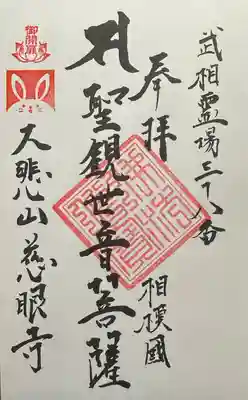 武相霊場三十八番
奉拝
相模國
聖観世音菩薩
大悲山慈眼寺
御開扉